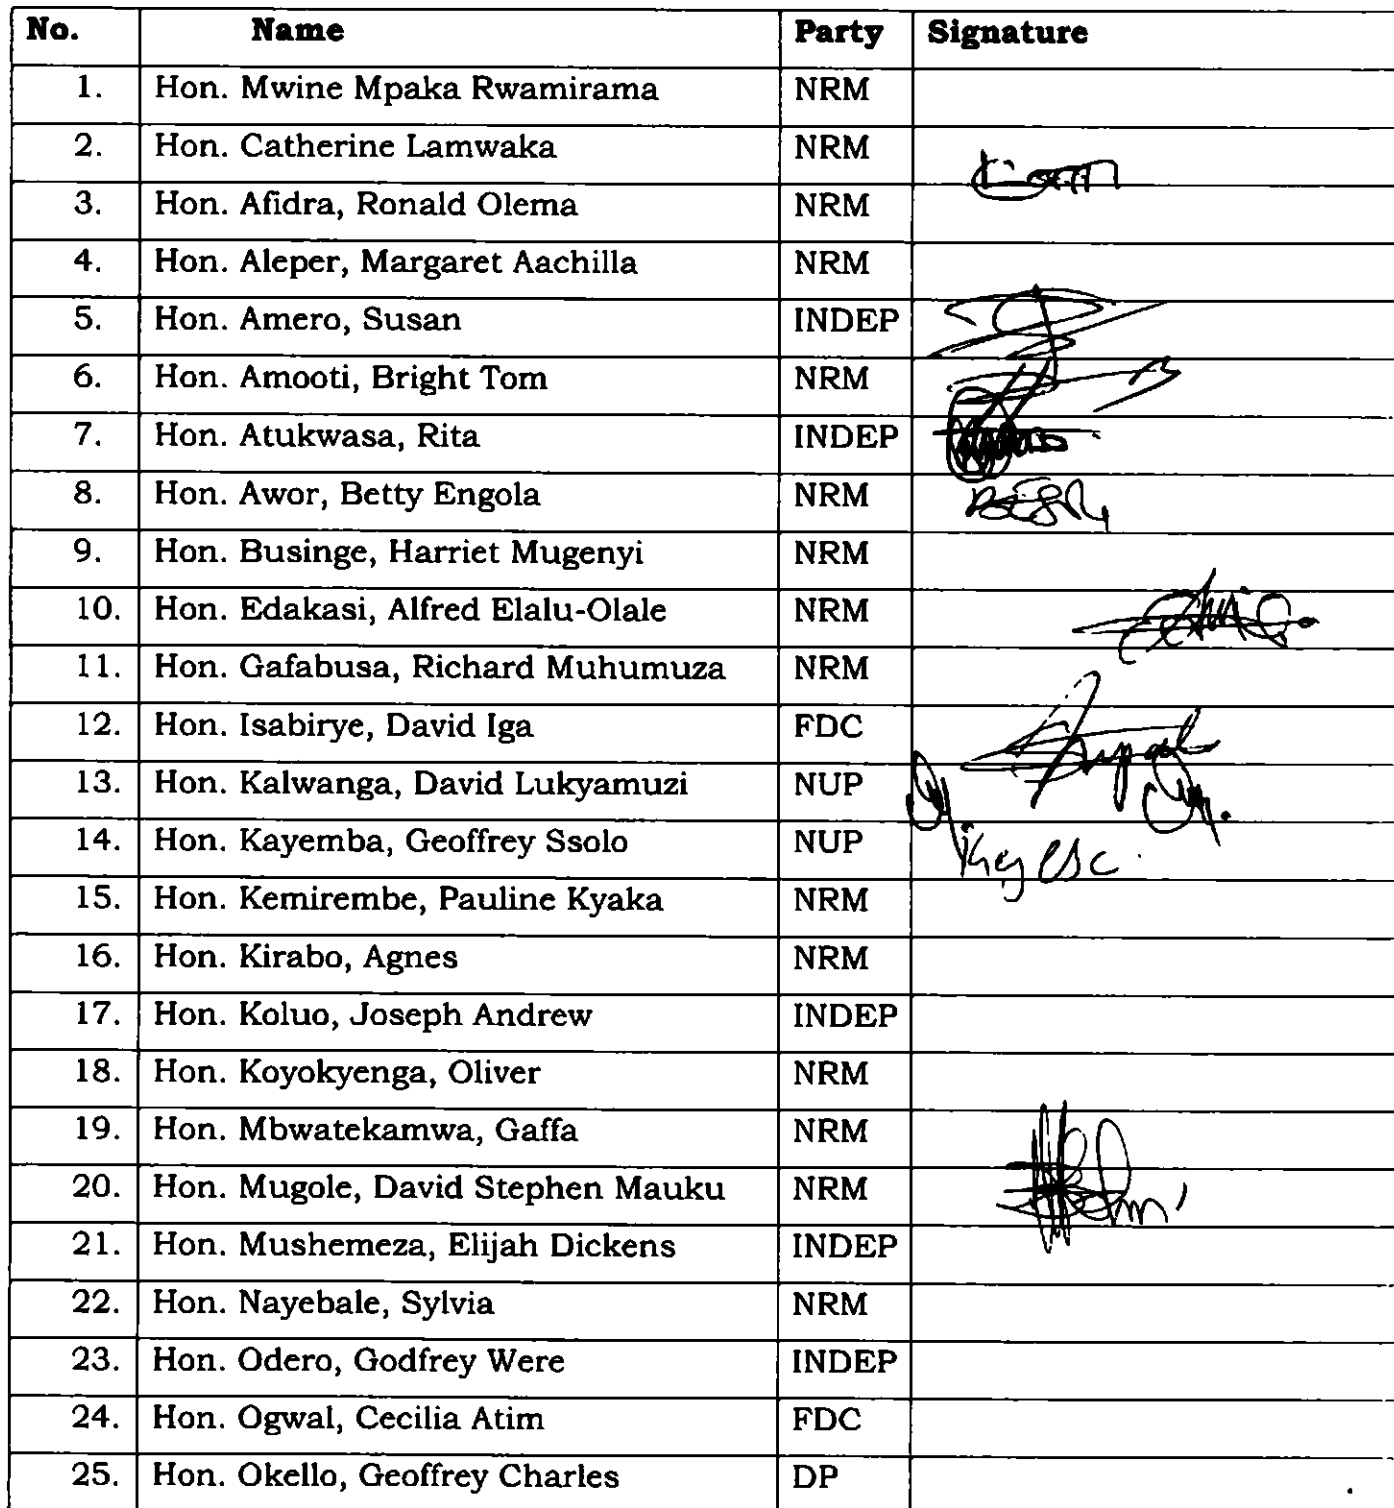 No. Name Party Signature
1. Hon. Mwine Mpaka Rwamirama NRM
2. Hon. Catherine Lamwaka NRM
3. Hon. Afidra, Ronald Olema NRM
4. Hon. Aleper, Margaret Aachilla NRM
5. Hon. Amero, Susan INDEP
6. Hon. Amooti, Bright Tom NRM
7. Hon. Atukwasa, Rita INDEP
8. Hon. Awor, Betty Engola NRM
9. Hon. Businge, Harriet Mugenyi NRM
10. Hon. Edakasi, Alfred Elalu-Olale NRM
11. Hon. Gafabusa, Richard Muhumuza NRM
12. Hon. Isabirye, David Iga FDC
13. Hon. Kalwanga, David Lukyamuzi NUP
14. Hon. Kayemba, Geoffrey Ssolo NUP
15. Hon. Kemirembe, Pauline Kyaka NRM
16. Hon. Kirabo, Agnes NRM
17. Hon. Koluo, Joseph Andrew INDEP
18. Hon. Koyokyenga, Oliver NRM
19. Hon. Mbwatekamwa, Gaffa NRM
20. Hon. Mugole, David Stephen Mauku NRM
21. Hon. Mushemeza, Elijah Dickens INDEP
22. Hon. Nayebale, Sylvia NRM
23. Hon. Odero, Godfrey Were INDEP
24. Hon. Ogwal, Cecilia Atim FDC
25. Hon. Okello, Geoffrey Charles DP